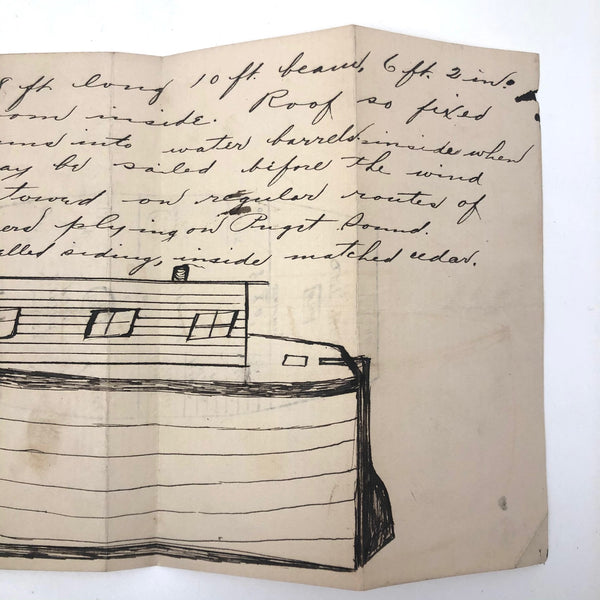 8 ft long 10 ft. beam, 6 ft 2 in.
oom inside. Roof so fixed
uns into water barrels inside when
ay be sailed before the wind
towed on regular routes of
ers plying on Puget Sound.
elled siding, inside matched cedar.